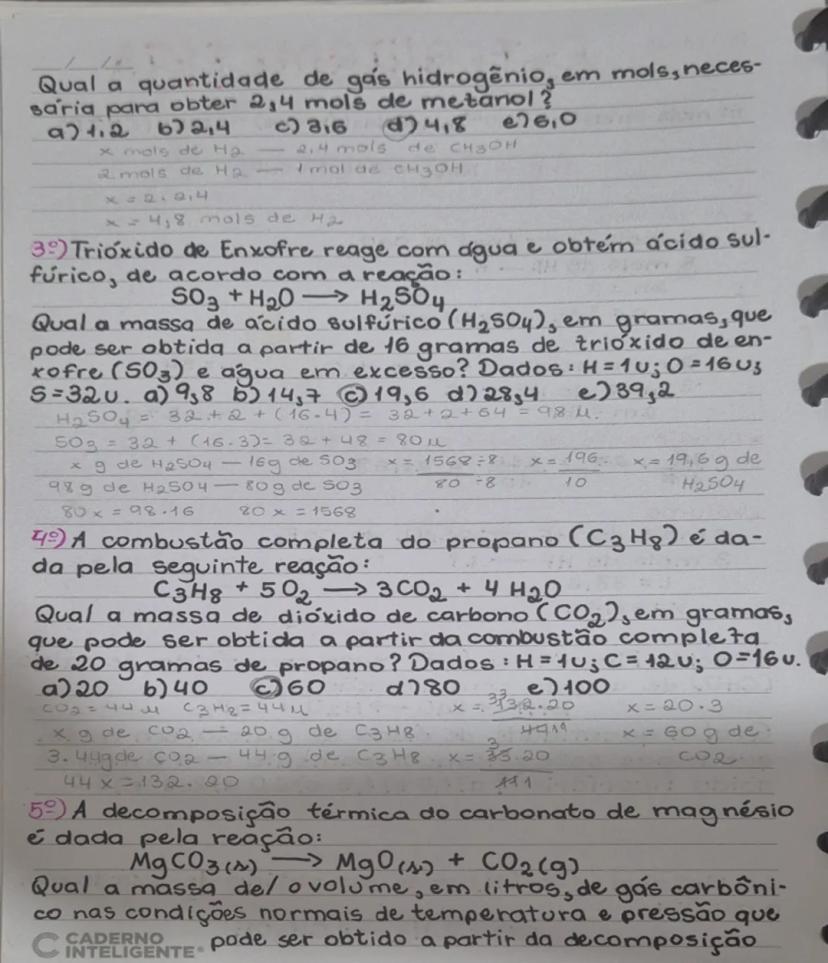 Qual a quantidade de gás hidrogênio, em mols, neces-
sária para obter 2,4 mols de metanol?
a) 1,2 b) 2,4 c) 3,6 d) 4,8 e) 6,0
x mols de H2 — 2,4 mols de CH3OH
2 mols de H2 — 1 mol de CH3OH
x = 2 . 2,4
x = 4,8 mols de H2
3º) Trióxido de Enxofre reage com água e obtém ácido sul-
fúrico, de acordo com a reação:
SO3 + H2O → H2SO4
Qual a massa de ácido sulfúrico (H2SO4), em gramas, que
pode ser obtida a partir de 16 gramas de trióxido de en-
xofre (SO3) e água em excesso? Dados: H = 1u; O = 16u;
S = 32u. a) 9,8 b) 14,7 c) 19,6 d) 28,4 e) 39,2
H2SO4 = 32 + 2 + (16.4) = 32 + 2 + 64 = 98 u.
SO3 = 32 + (16.3) = 32 + 48 = 80 u
x g de H2SO4 — 16g de SO3 x = 1568 ÷8 x = 196 x = 19,6 g de
98 g de H2SO4 — 80g de SO3 80 ÷8 10 H2SO4
80x = 98.16 80x = 1568
4º) A combustão completa do propano (C3H8) é da-
da pela seguinte reação:
C3H8 + 5O2 → 3CO2 + 4H2O
Qual a massa de dióxido de carbono (CO2), em gramas,
que pode ser obtida a partir da combustão completa
de 20 gramas de propano? Dados: H = 1u; C = 12u; O = 16u.
a) 20 b) 40 c) 60 d) 80 e) 100
CO2 = 44 u C3H8 = 44 u x = 132.20 x = 20.3
x g de CO2 — 20 g de C3H8 x = 60 g de
3.44g de CO2 — 44 g de C3H8 x = 33.20 CO2
44x = 132.20 11
5º) A decomposição térmica do carbonato de magnésio
é dada pela reação:
MgCO3(s) → MgO(s) + CO2(g)
Qual a massa de/ o volume, em litros, de gás carbôni-
co nas condições normais de temperatura e pressão que
pode ser obtido a partir da decomposição
CADERNO
INTELIGENTE